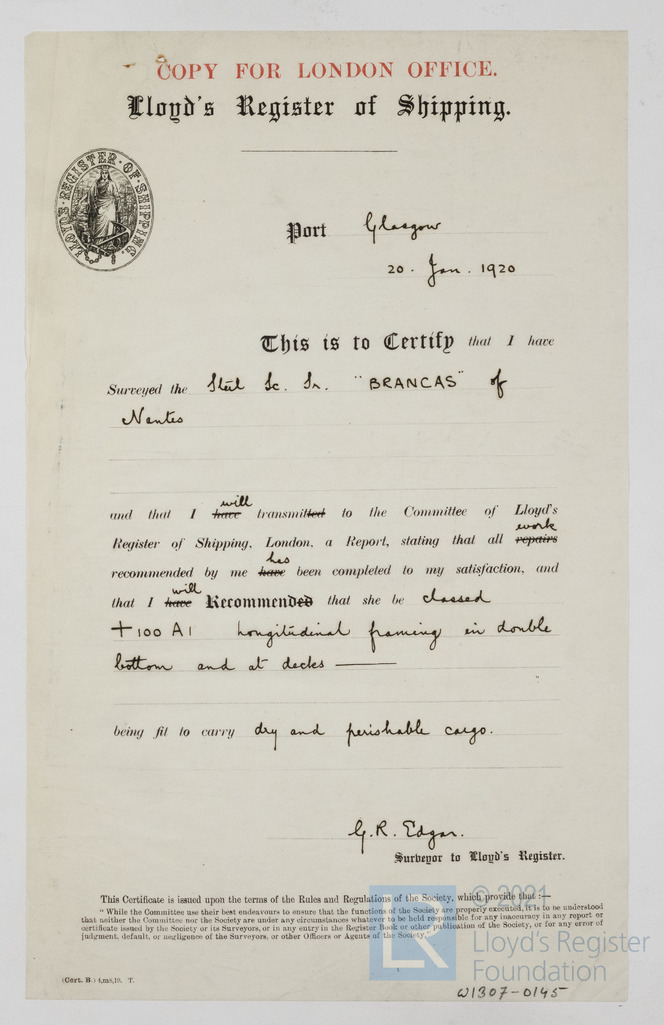 COPY FOR LONDON OFFICE.
Lloyd's Register of Shipping.
LLOYD'S·REGISTER·OF·SHIPPING.
Port Glasgow
20. Jan. 1920
This is to Certify that I have
Surveyed the Steel Sc. Sr. "BRANCAS" of
Nantes
will
and that I have transmitted to the Committee of Lloyd's
work
Register of Shipping, London, a Report, stating that all repairs
has
recommended by me have been completed to my satisfaction, and
will
that I have Recommended that she be classed
+100 A1 Longitudinal framing in double
bottom and at decks ———
being fit to carry dry and perishable cargo.
G. R. Edgar.
Surveyor to Lloyd's Register.
This Certificate is issued upon the terms of the Rules and Regulations of the Society, which provide that :—
"While the Committee use their best endeavours to ensure that the functions of the Society are properly executed, it is to be understood
that neither the Committee nor the Society are under any circumstances whatever to be held responsible for any inaccuracy in any report or
certificate issued by the Society or its Surveyors, or in any entry in the Register Book or other publication of the Society, or for any error of
judgment, default, or negligence of the Surveyors, or other Officers or Agents of the Society."
© 2021
LR
Lloyd's Register
Foundation
(Cert. B.) 4,m8,19. T.
W1307-0145